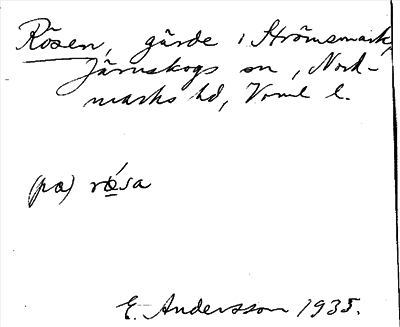 Rösen, gärde i Strömsmark,
Järnskogs sn, Nord-
marks hd, Värml l.
(pœ) rœ́sa
E. Andersson 1935.